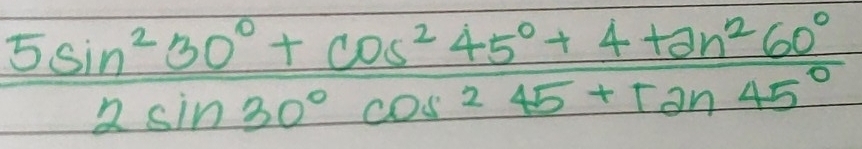 5 sin² 30° + cos² 45° + 4 tan² 60°
2 sin 30° cos² 45 + tan 45°